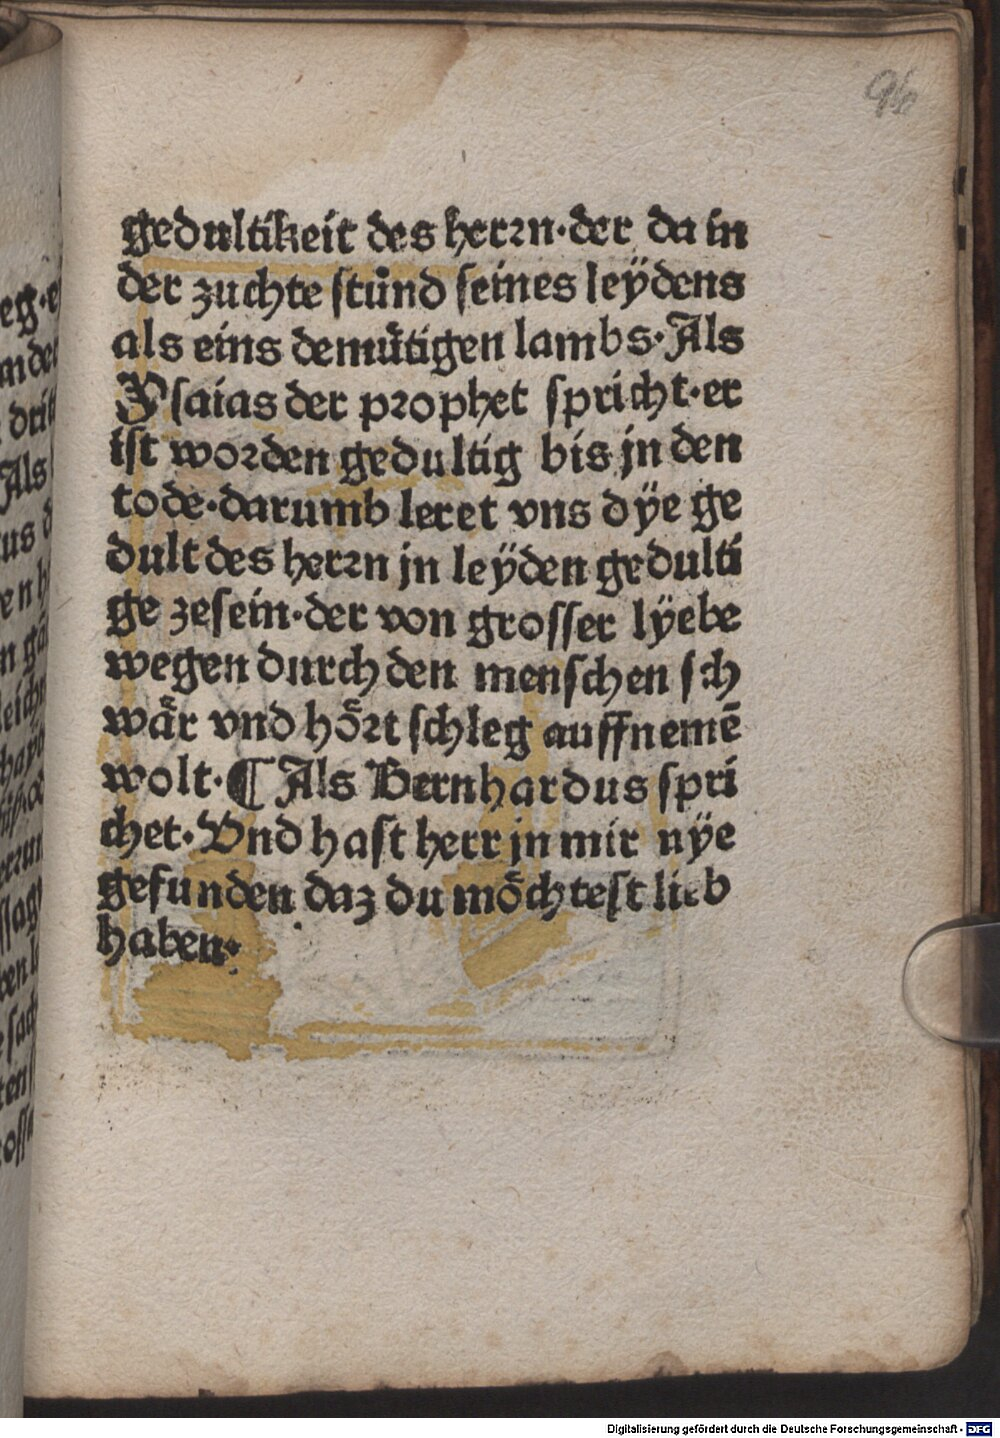 96
gedultikeit des herrn·der da in
der zuchte stůnd seines leÿdens
als eins demůtigen lambs·Als
Ysaias der prophet spricht·er
ist worden gedultig bis jn den
tode·darumb leret vns dÿe ge
dult des herrn jn leÿden gedulti
ge zesein·der von grosser lÿebe
wegen durch den menschen sch
wår vnd hoͤrt schleg auffnemē
wolt·¶ Als Bernhardus spri
chet·Vnd hast herr jn mir nÿe
gefunden daz du moͤchtest lieb
haben·
Digitalisierung gefördert durch die Deutsche Forschungsgemeinschaft · DFG